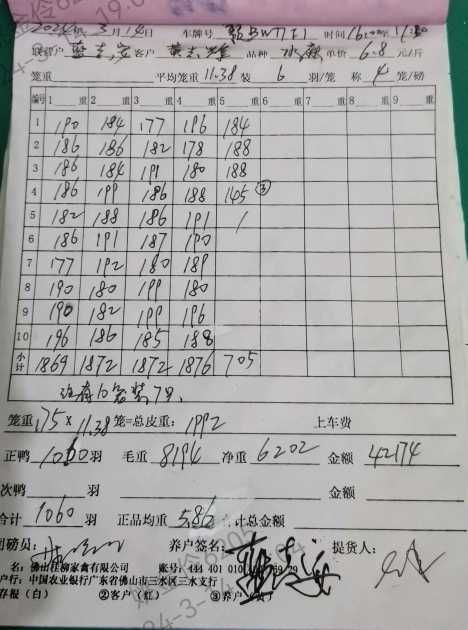 2024年 3月14日 车牌号 时间16
联养户 蓝志安 客户 黄志雄 品种 水鸭 单价 6.8 元/斤
笼重 平均笼重 11.38 装 6 羽/笼 称 4 笼/磅
编号 1 重 2 重 3 重 4 重 5 重 6 重 7 重 8 重 9 重
1 190 184 177 196 184
2 186 186 182 178 188
3 186 184 191 180 188
4 186 199 186 188 145 ③
5 182 188 186 191 /
6 186 191 187 190
7 177 192 180 189
8 190 180 199 180
9 190 182 199 196
10 196 186 185 188
小计 1869 1872 1872 1876 705
笼重 175 × 11.38 笼=总皮重: 1992 上车费
正鸭 1060 羽 毛重 8194 净重 6202 金额 42174
次鸭 羽 金额
合计 1060 羽 正品均重 5.86 计总金额
磅员: 养户签名: 提货人:
名: 佛山佳柳家禽有限公司 账号: 444 401 010
户行: 中国农业银行广东省佛山市三水区三水支行
存根 (白) ②客户 (红) ③养户 (黄)